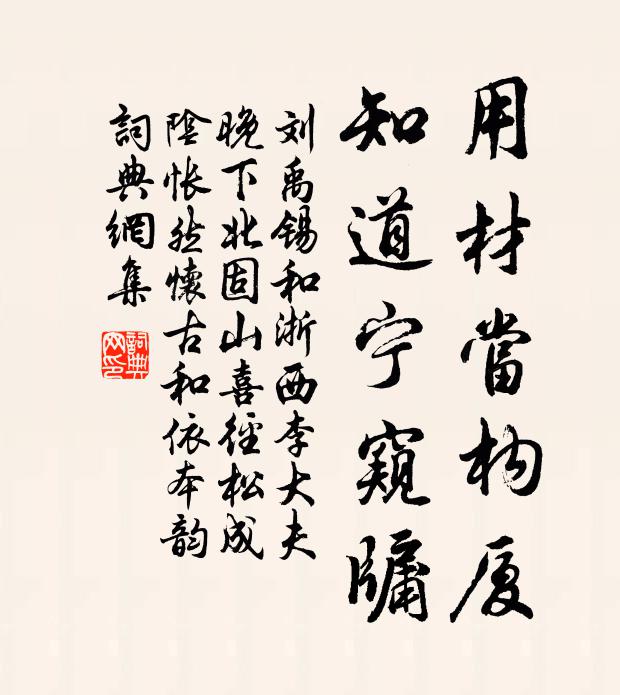 用材當构厦
知道宁窺牖
刘禹锡和浙西李大夫
晚下北固山喜徑松成
陰悵然懷古和依本韵
詞典網集
詞典网印